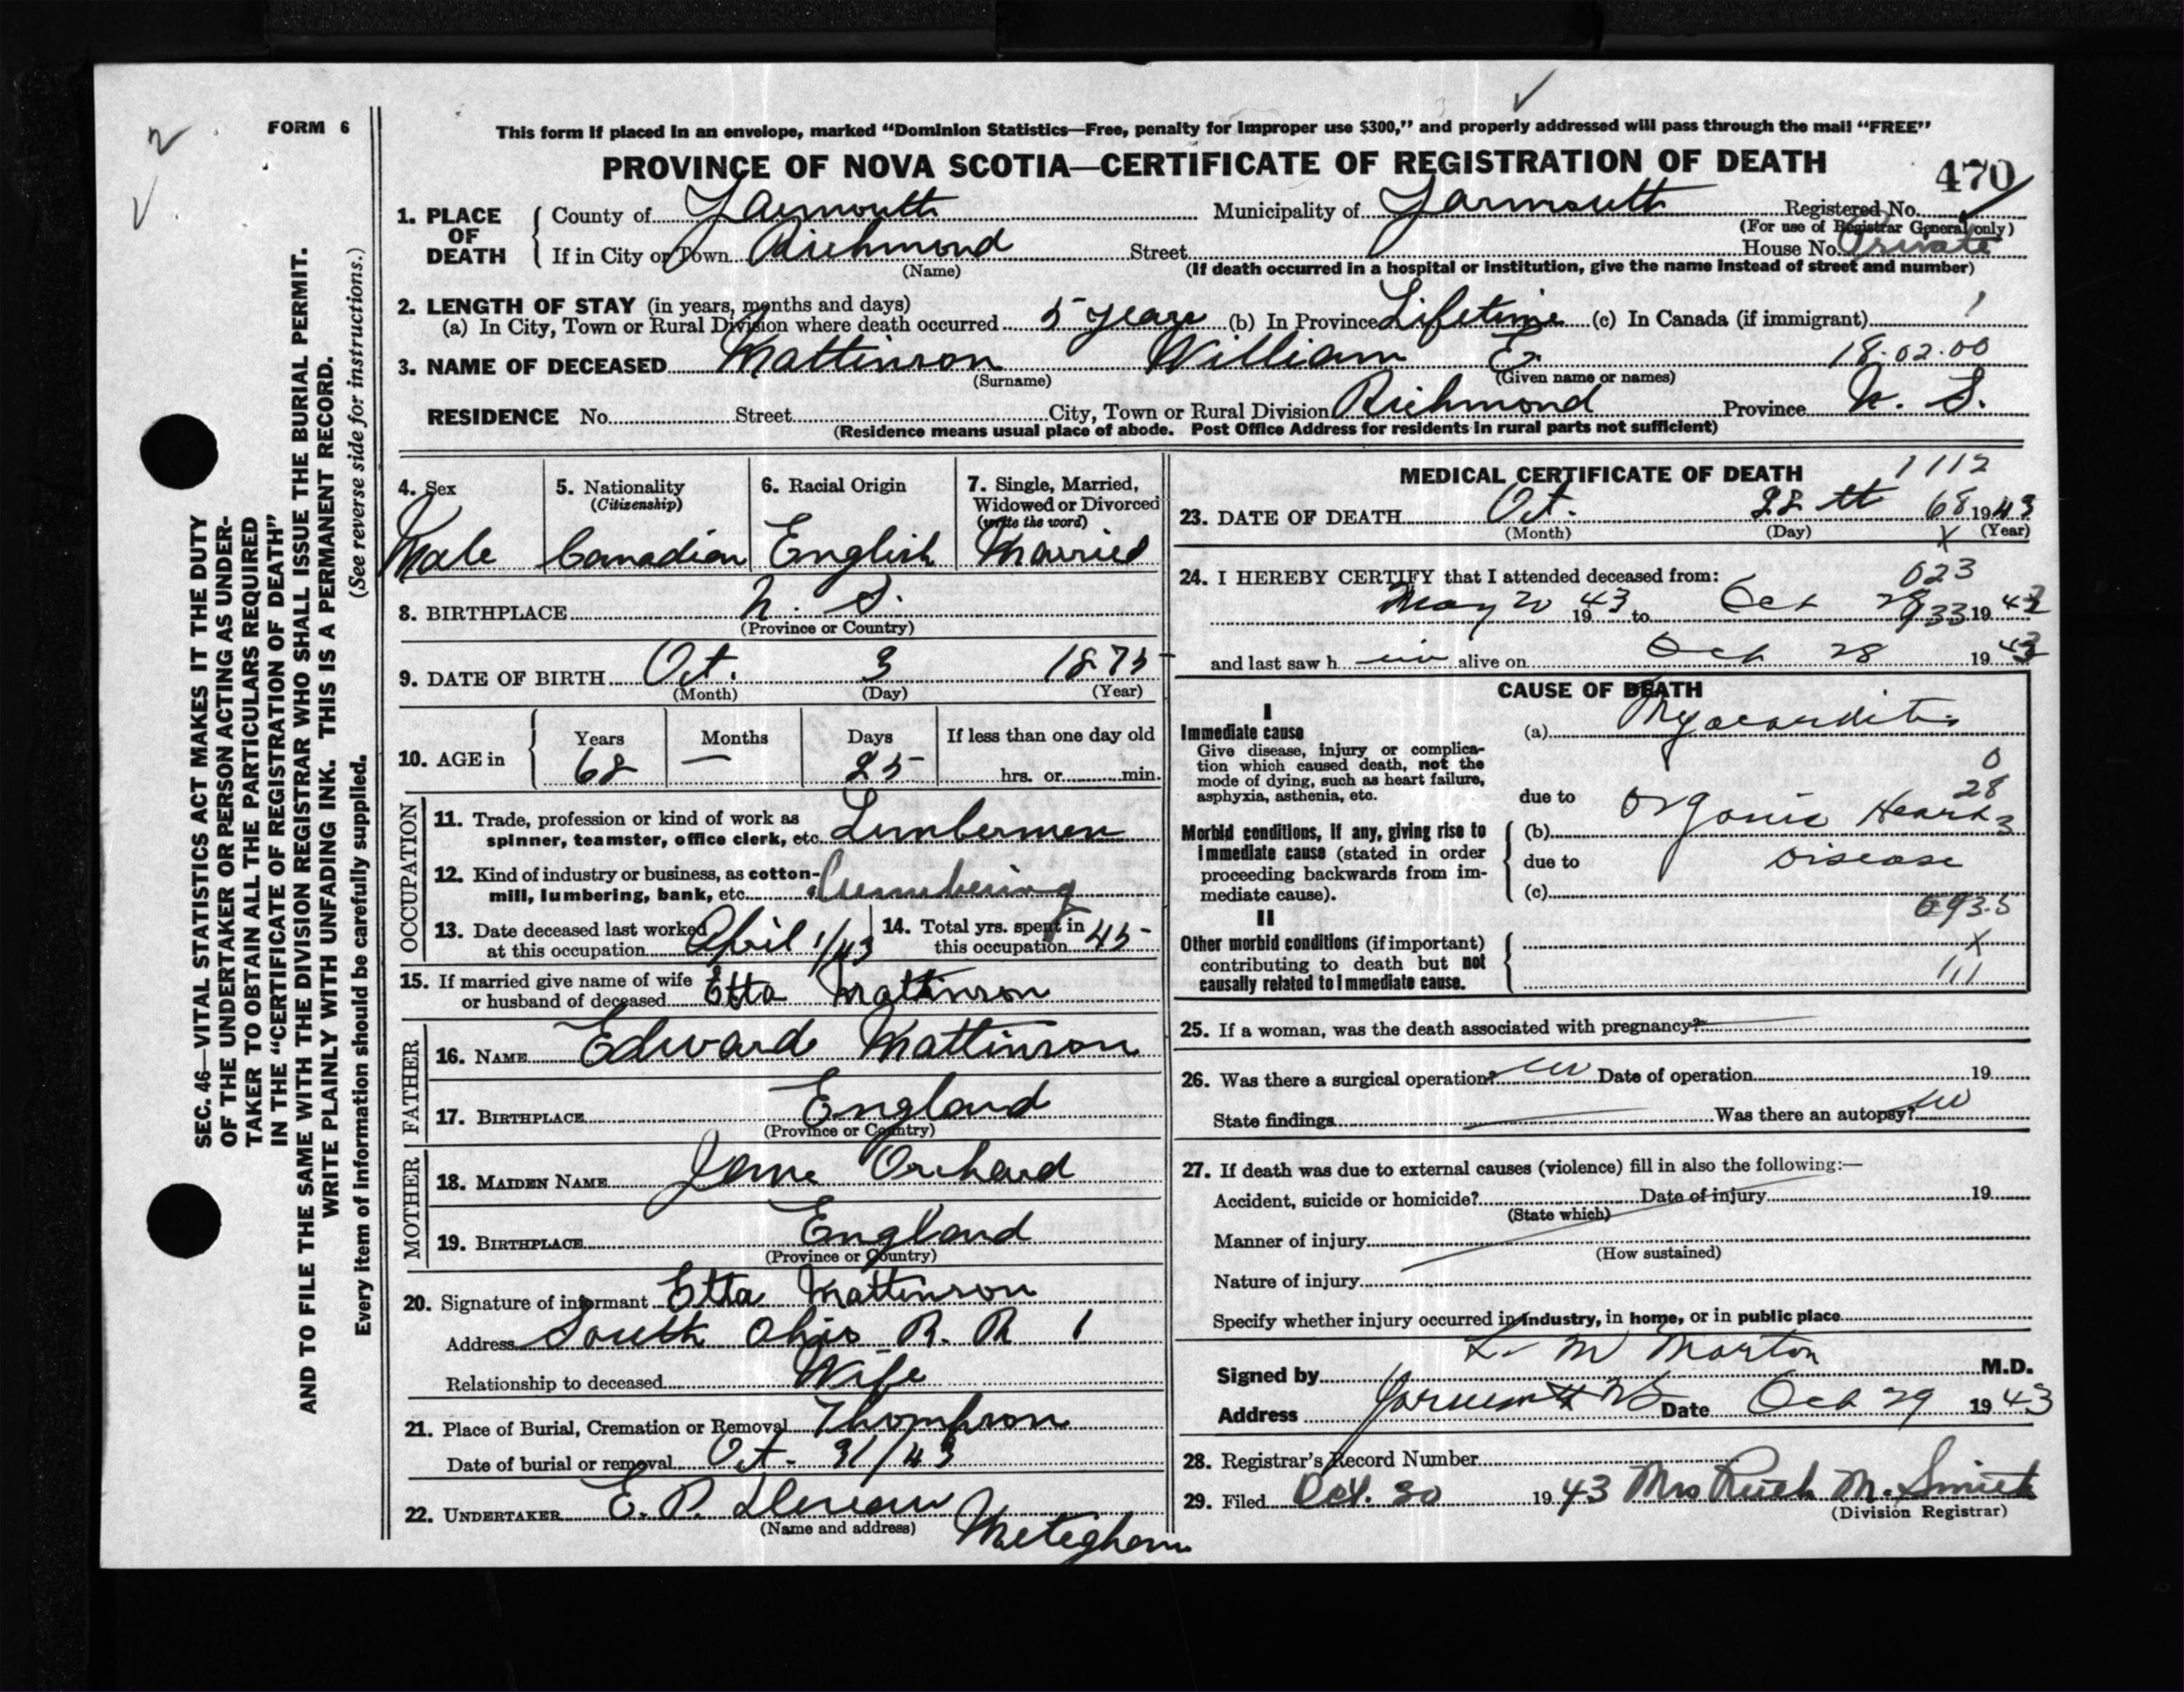 FORM 6
This form if placed in an envelope, marked “Dominion Statistics—Free, penalty for improper use $300,” and properly addressed will pass through the mail “FREE”
PROVINCE OF NOVA SCOTIA—CERTIFICATE OF REGISTRATION OF DEATH
470
1. PLACE OF DEATH
County of Yarmouth Municipality of Yarmouth Registered No.
(For use of Registrar General only)
If in City or Town Richmond Street House No. Private
(Name) (If death occurred in a hospital or institution, give the name instead of street and number)
2. LENGTH OF STAY (in years, months and days)
(a) In City, Town or Rural Division where death occurred 5 years (b) In Province Lifetime (c) In Canada (if immigrant)
3. NAME OF DECEASED Mattinson William E. 18.02.00
(Surname) (Given name or names)
RESIDENCE No. Street City, Town or Rural Division Richmond Province N. S.
(Residence means usual place of abode. Post Office Address for residents in rural parts not sufficient)
4. Sex
Male
5. Nationality
(Citizenship)
Canadian
6. Racial Origin
English
7. Single, Married,
Widowed or Divorced
(write the word)
Married
8. BIRTHPLACE N. S.
(Province or Country)
9. DATE OF BIRTH Oct. 3 1875
(Month) (Day) (Year)
10. AGE in
Years Months Days If less than one day old
68 — 25 hrs. or min.
OCCUPATION
11. Trade, profession or kind of work as
spinner, teamster, office clerk, etc. Lumberman
12. Kind of industry or business, as cotton-
mill, lumbering, bank, etc. Lumbering
13. Date deceased last worked
at this occupation April 1/43
14. Total yrs. spent in
this occupation 45
15. If married give name of wife
or husband of deceased Etta Mattinson
FATHER
16. NAME Edward Mattinson
17. BIRTHPLACE England
(Province or Country)
MOTHER
18. MAIDEN NAME Jane Orchard
19. BIRTHPLACE England
(Province or Country)
20. Signature of informant Etta Mattinson
Address South Ohio R. R 1
Relationship to deceased Wife
21. Place of Burial, Cremation or Removal Thompson
Date of burial or removal Oct. 31/43
22. UNDERTAKER E. P.
(Name and address) Meteghan
MEDICAL CERTIFICATE OF DEATH 1112
23. DATE OF DEATH Oct. 28th 68 1943
(Month) (Day) X (Year)
24. I HEREBY CERTIFY that I attended deceased from: 023
May 20 1943 to Oct 933 1943
and last saw h im alive on Oct 28 1943
CAUSE OF DEATH
I
Immediate cause
Give disease, injury or complica-
tion which caused death, not the
mode of dying, such as heart failure,
asphyxia, asthenia, etc.
(a) Myocarditis
0
28
due to
Morbid conditions, if any, giving rise to
immediate cause (stated in order
proceeding backwards from im-
mediate cause).
(b) Organic Heart 3
due to Disease
(c)
093.5
II
Other morbid conditions (if important)
contributing to death but not
causally related to immediate cause.
X
111
25. If a woman, was the death associated with pregnancy?
26. Was there a surgical operation? no Date of operation 19
State findings Was there an autopsy? no
27. If death was due to external causes (violence) fill in also the following:—
Accident, suicide or homicide? Date of injury 19
(State which)
Manner of injury
(How sustained)
Nature of injury
Specify whether injury occurred in industry, in home, or in public place
Signed by L. M Morton M.D.
Address Yarmouth NS Date Oct 29 1943
28. Registrar's Record Number
29. Filed Oct. 30 1943 Mrs Ruth M. Smith
(Division Registrar)
SEC. 46—VITAL STATISTICS ACT MAKES IT THE DUTY
OF THE UNDERTAKER OR PERSON ACTING AS UNDER-
TAKER TO OBTAIN ALL THE PARTICULARS REQUIRED
IN THE “CERTIFICATE OF REGISTRATION OF DEATH”
AND TO FILE THE SAME WITH THE DIVISION REGISTRAR WHO SHALL ISSUE THE BURIAL PERMIT.
WRITE PLAINLY WITH UNFADING INK. THIS IS A PERMANENT RECORD.
Every item of information should be carefully supplied. (See reverse side for instructions.)